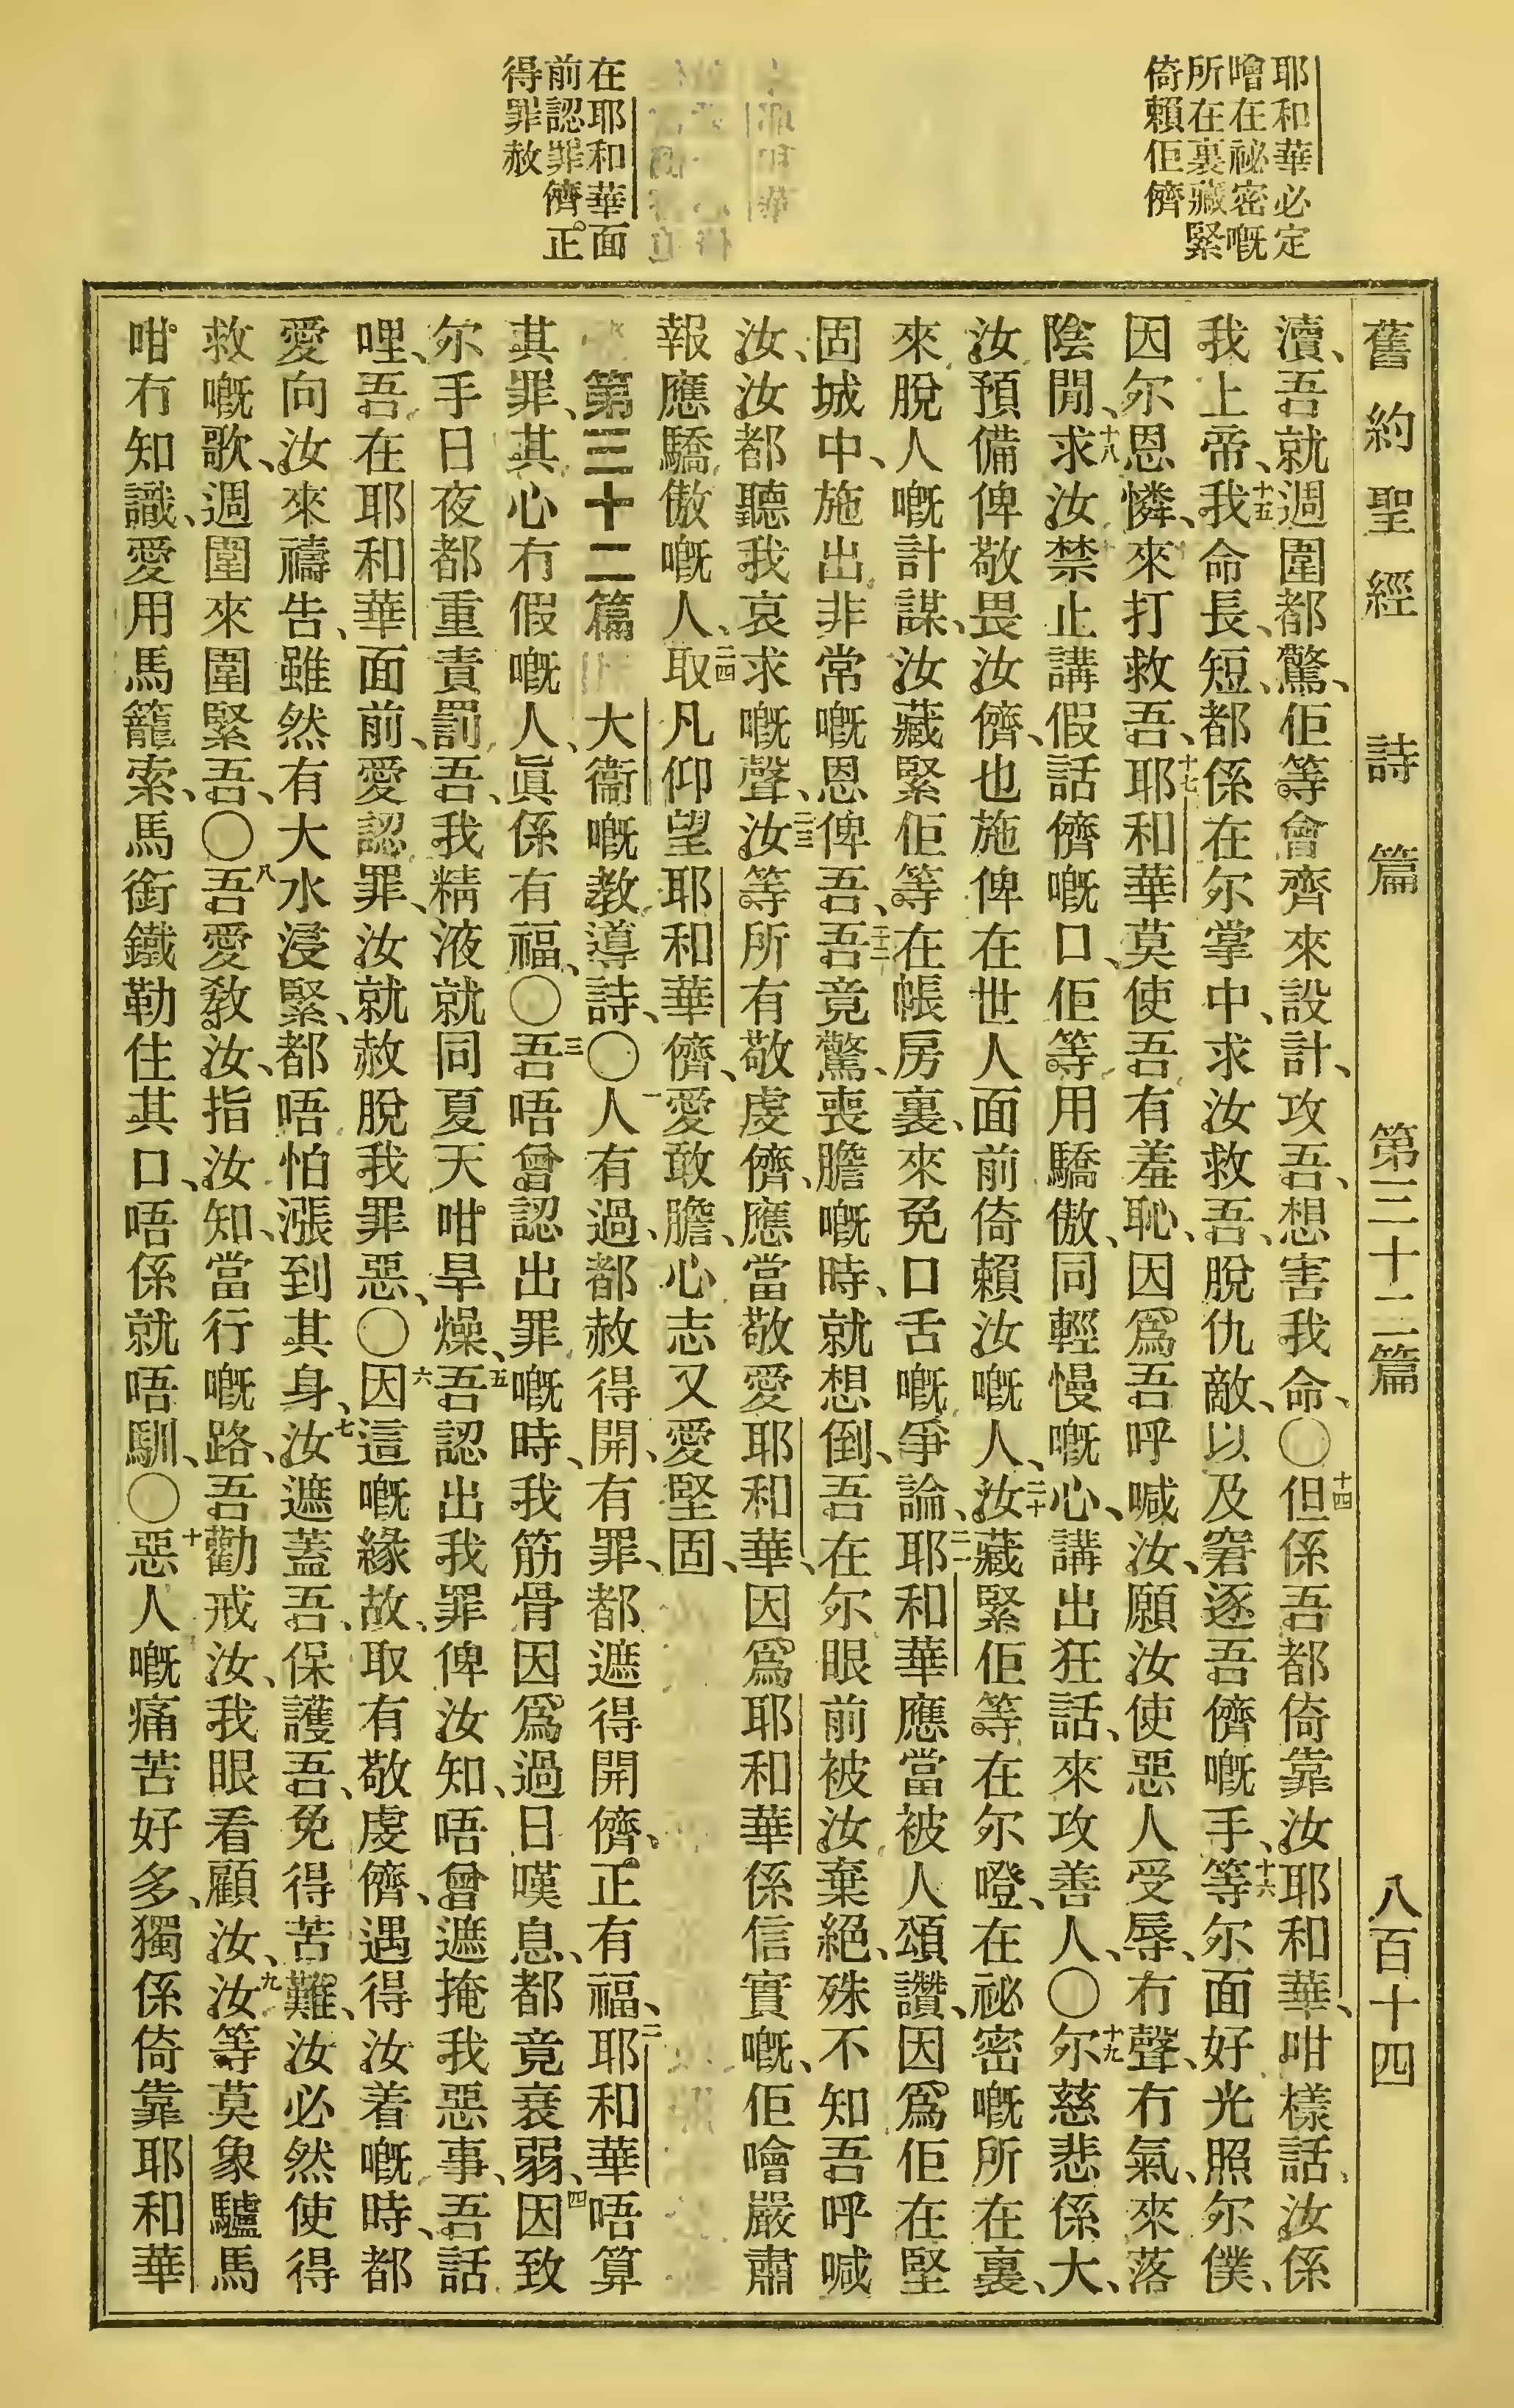 耶和華必定
噲在祕密嘅
所在裏藏緊
倚賴佢儕
在耶和華面
前認罪儕正
得罪赦
舊約聖經 詩篇 第三十二篇 八百十四
瀆、吾就週圍都驚、佢等會齊來設計、攻吾、想害我命、〇十四但係吾都倚靠汝耶和華、咁樣話、汝係
我上帝、十五我命長、短、都係在尔掌中、求汝救吾、脫仇敵、以及窘逐吾儕嘅手、十六等尔面好光照尔僕、
因尔恩憐、來打救吾、十七耶和華莫使吾有羞恥、因爲吾呼喊汝、願汝使惡人受辱、冇聲、冇氣、來落
陰間、十八求汝禁止講假話儕嘅口、佢等用驕傲、同輕慢嘅心、講出狂話、來攻善人、〇十九尔慈悲係大、
汝預備俾敬畏汝儕、也施俾在世人面前倚賴汝嘅人、二十汝藏緊佢等在尔嶝、在祕密嘅所在裏、
來脫人嘅計謀、汝藏緊佢等在帳房裏、來免口舌嘅爭論、二一耶和華應當被人頌讚、因爲佢在堅
固城中、施出非常嘅恩俾吾、二二吾竟驚、喪膽嘅時、就想倒、吾在尔眼前被汝棄絕、殊不知吾呼喊
汝、汝都聽我哀求嘅聲、二三汝等所有敬虔儕、應當敬愛耶和華、因爲耶和華係信實嘅、佢噲嚴肅
報應驕傲嘅人、二四取凡仰望耶和華儕、愛敢膽、心志又愛堅固、
第三十二篇 大衞嘅教導詩、〇一人有過、都赦得開、有罪、都遮得開儕、正有福、二耶和華唔算
其罪、其心冇假嘅人、眞係有福、〇三吾唔曾認出罪嘅時、我筋骨因爲過日嘆息、都竟衰弱、四因致
尔手日夜都重責罰吾、我精液就同夏天咁旱燥、五吾認出我罪俾汝知、唔曾遮掩我惡事、吾話
哩、吾在耶和華面前、愛認罪、汝就赦脫我罪惡、〇六因這嘅緣故、取有敬虔儕、遇得汝着嘅時、都
愛向汝來禱告、雖然有大水浸緊、都唔怕漲到其身、七汝遮蓋吾、保護吾、免得苦難、汝必然使得
救嘅歌、週圍來圍緊吾、〇八吾愛教汝、指汝知、當行嘅路、吾勸戒汝、我眼看顧汝、九汝等莫象驢馬
咁冇知識、愛用馬籠索、馬銜鐵勒住其口、唔係就唔馴、〇十惡人嘅痛苦好多、獨係倚靠耶和華